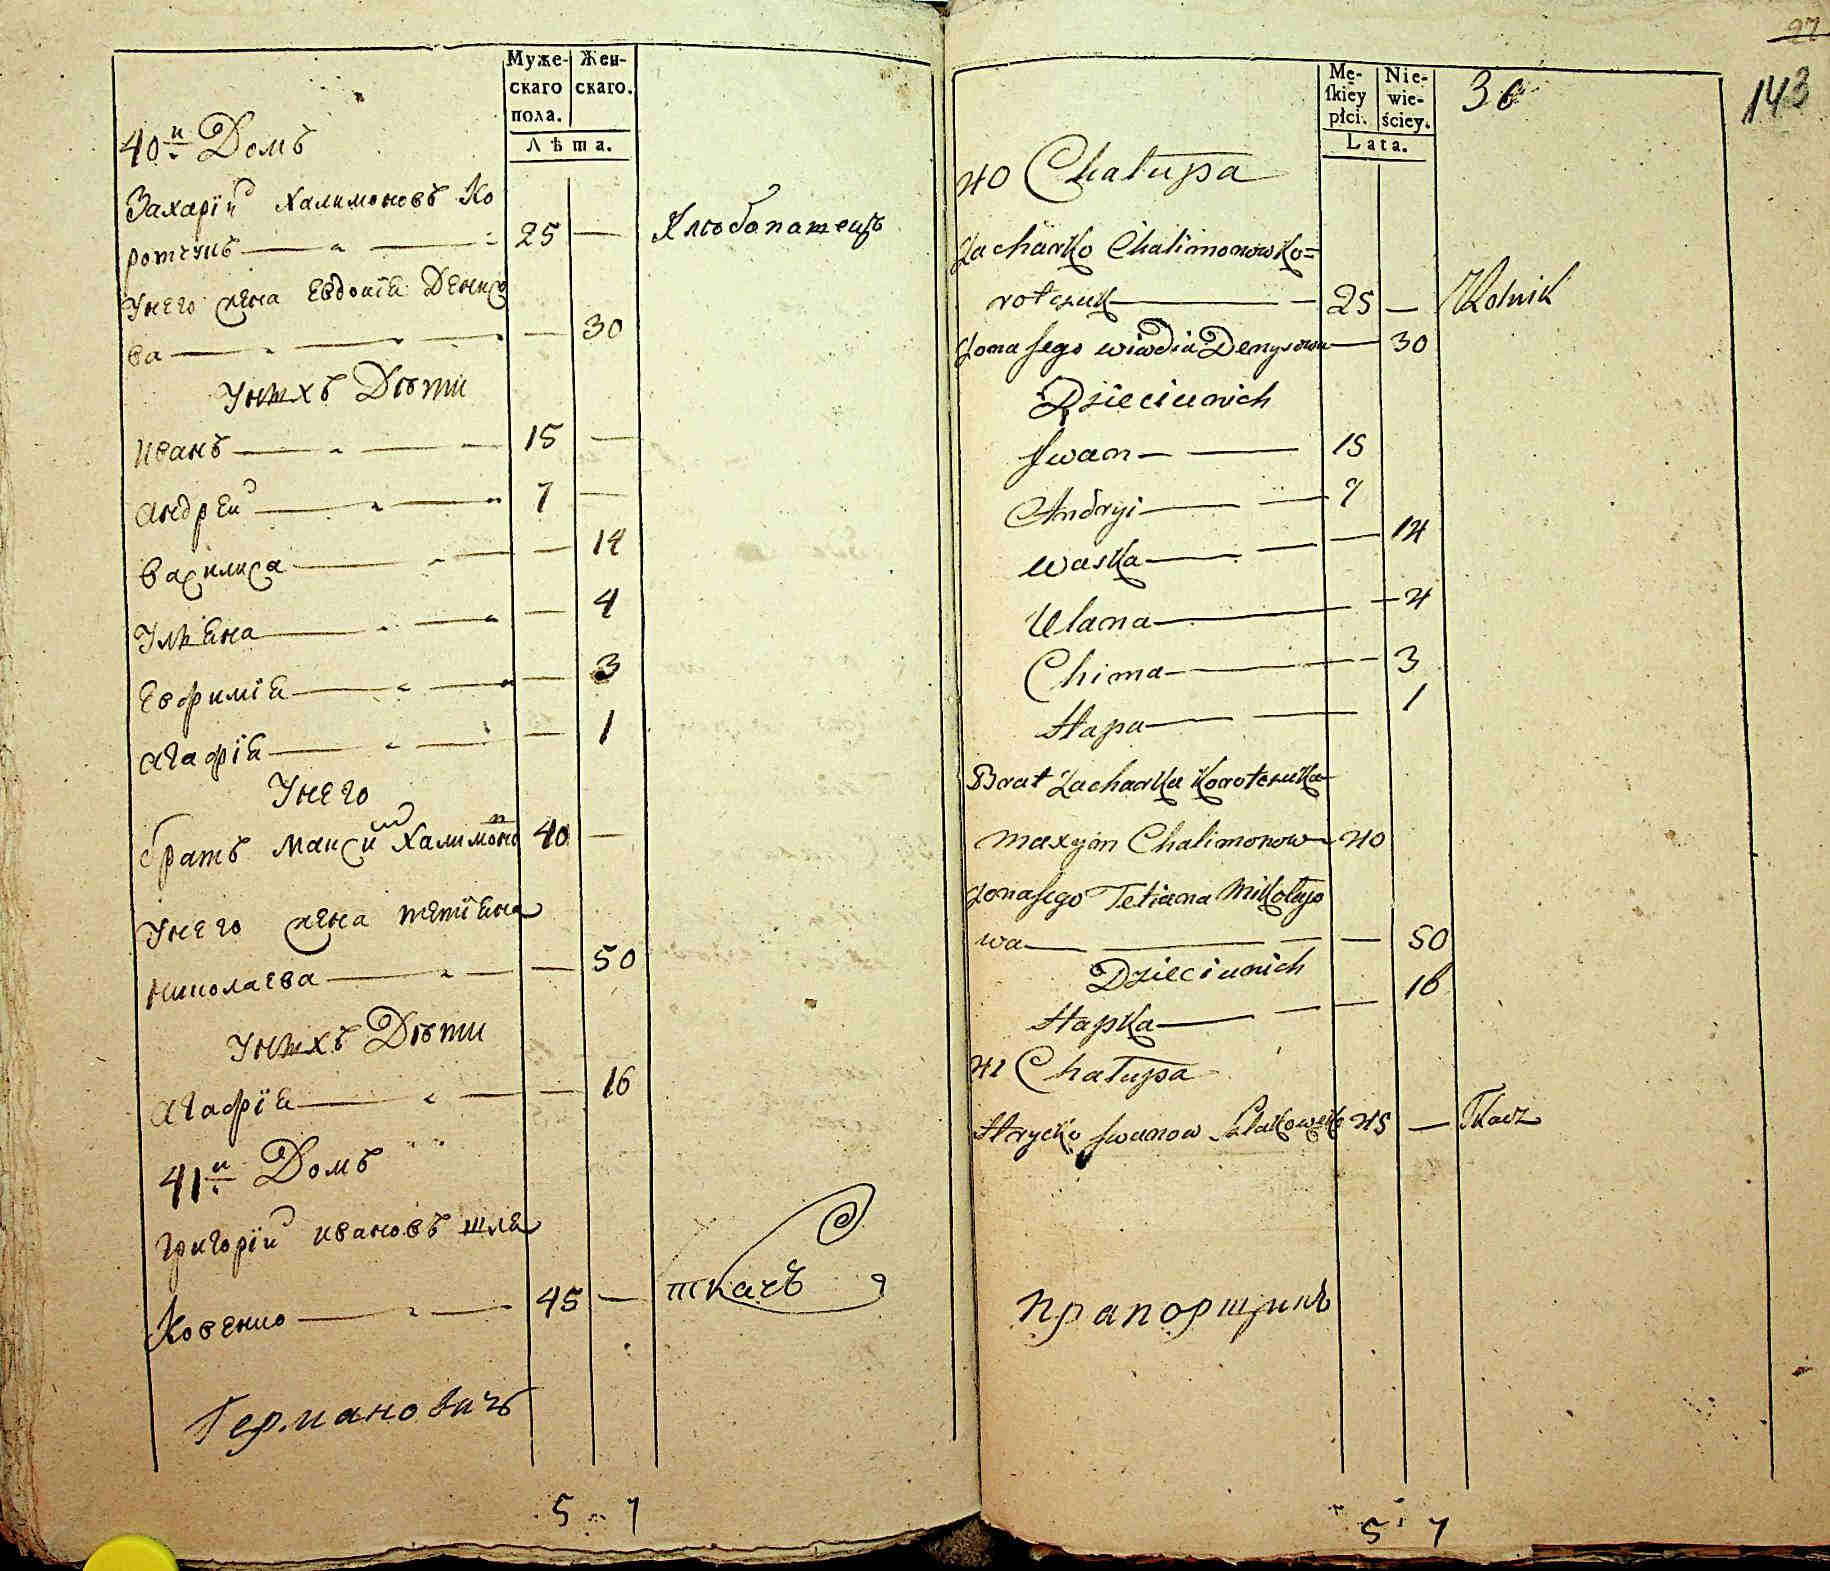 Муже-
скаго
пола.
Жен-
скаго.
Лѣта.
40й Домъ
Захарїй Халимоновъ Ко
ротчукъ 25 — Хлѣбопашецъ
У него жена Евдокїя Денисо
ва — 30
У нихъ Дѣти
Иванъ 15 —
Андрей 7 —
Василиса — 14
Улїяна — 4
Евфимїя — 3
Агафїя — 1
У него
братъ Максимъ Халимоновъ 40 —
У него жена Тетїяна
Николаева — 50
У нихъ Дѣти
Агафїя — 16
41й Домъ
Григорїй Ивановъ Шля
ковенко 45 — ткачъ
Германовичъ
5 7
27
143
36
Mę-
ſkiey
płci.
Nie-
wie-
ściey.
Lata.
40 Chałupa
Zacharko Chalimonow Ko=
rotczuk 25 — Rolnik
Zona Jego Wiwdia Denysowa — 30
Dzieci u nich
Iwan 15
Andryi 7
Waska — 14
Ulana — 4
Chima — 3
Hapa 1
Brat Zacharka Korotczuka
Maxym Chalimonow 40
Zona Jego Tetiana Mikołajo
wa — 50
Dzieci u nich
Hapka — 16
41 Chałupa
Hrycko Iwanow 45 — Tkacz
Прапорщикъ
5 7